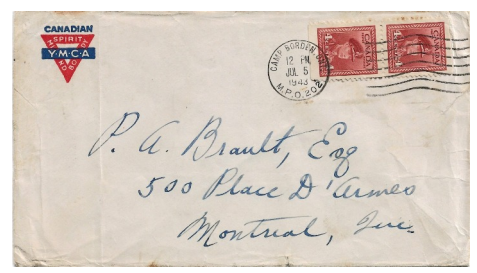 CANADIAN
SPIRIT
Y·M·C·A
CAMP BORDEN,
12 PM
JUL 5
1943
M.P.O. 202
4 CANADA
4 CANADA
P. A. Brault, Esq
500 Place D'Armes
Montreal, Que.